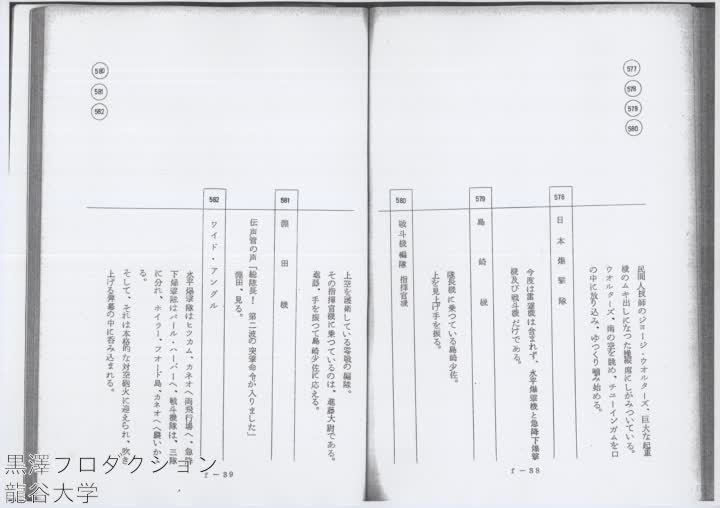 577
578
579
580
民間人技師のジョージ・ウオルターズ、巨大な起重
機のムキ出しになつた操縦席にしがみついている。
ウオルターズ、南の空を眺め、チユーインガムを口
の中に放り込み、ゆつくり嚙み始める。
578
日本爆撃隊
今度は雷撃機は含まれず、水平爆撃機と急降下爆撃
機及び戦斗機だけである。
579
島崎機
隊長機に乗つている島崎少佐。
上を見上げ手を振る。
580
戦斗機編隊 指揮官機
f－88
580
581
582
上空を護衛している零戦の編隊。
その指揮官機に乗つているのは、進藤大尉である。
進藤、手を振つて島崎少佐に応える。
581
淵田機
伝声管の声「総隊長！ 第二波の突撃命令が入りました」
淵田、見る。
582
ワイド・アングル
水平爆撃隊はヒツカム、カネオヘ両飛行場へ、急降
下爆撃隊はパール・ハーバーへ、戦斗機隊は、三隊
に分れ、ホイラー、フオード島、カネオヘへ襲いかゝ
る。
そして、それは本格的な対空砲火に迎えられ、吹き
上げる弾幕の中に呑み込まれる。
f－89
黒澤プロダクション
龍谷大学